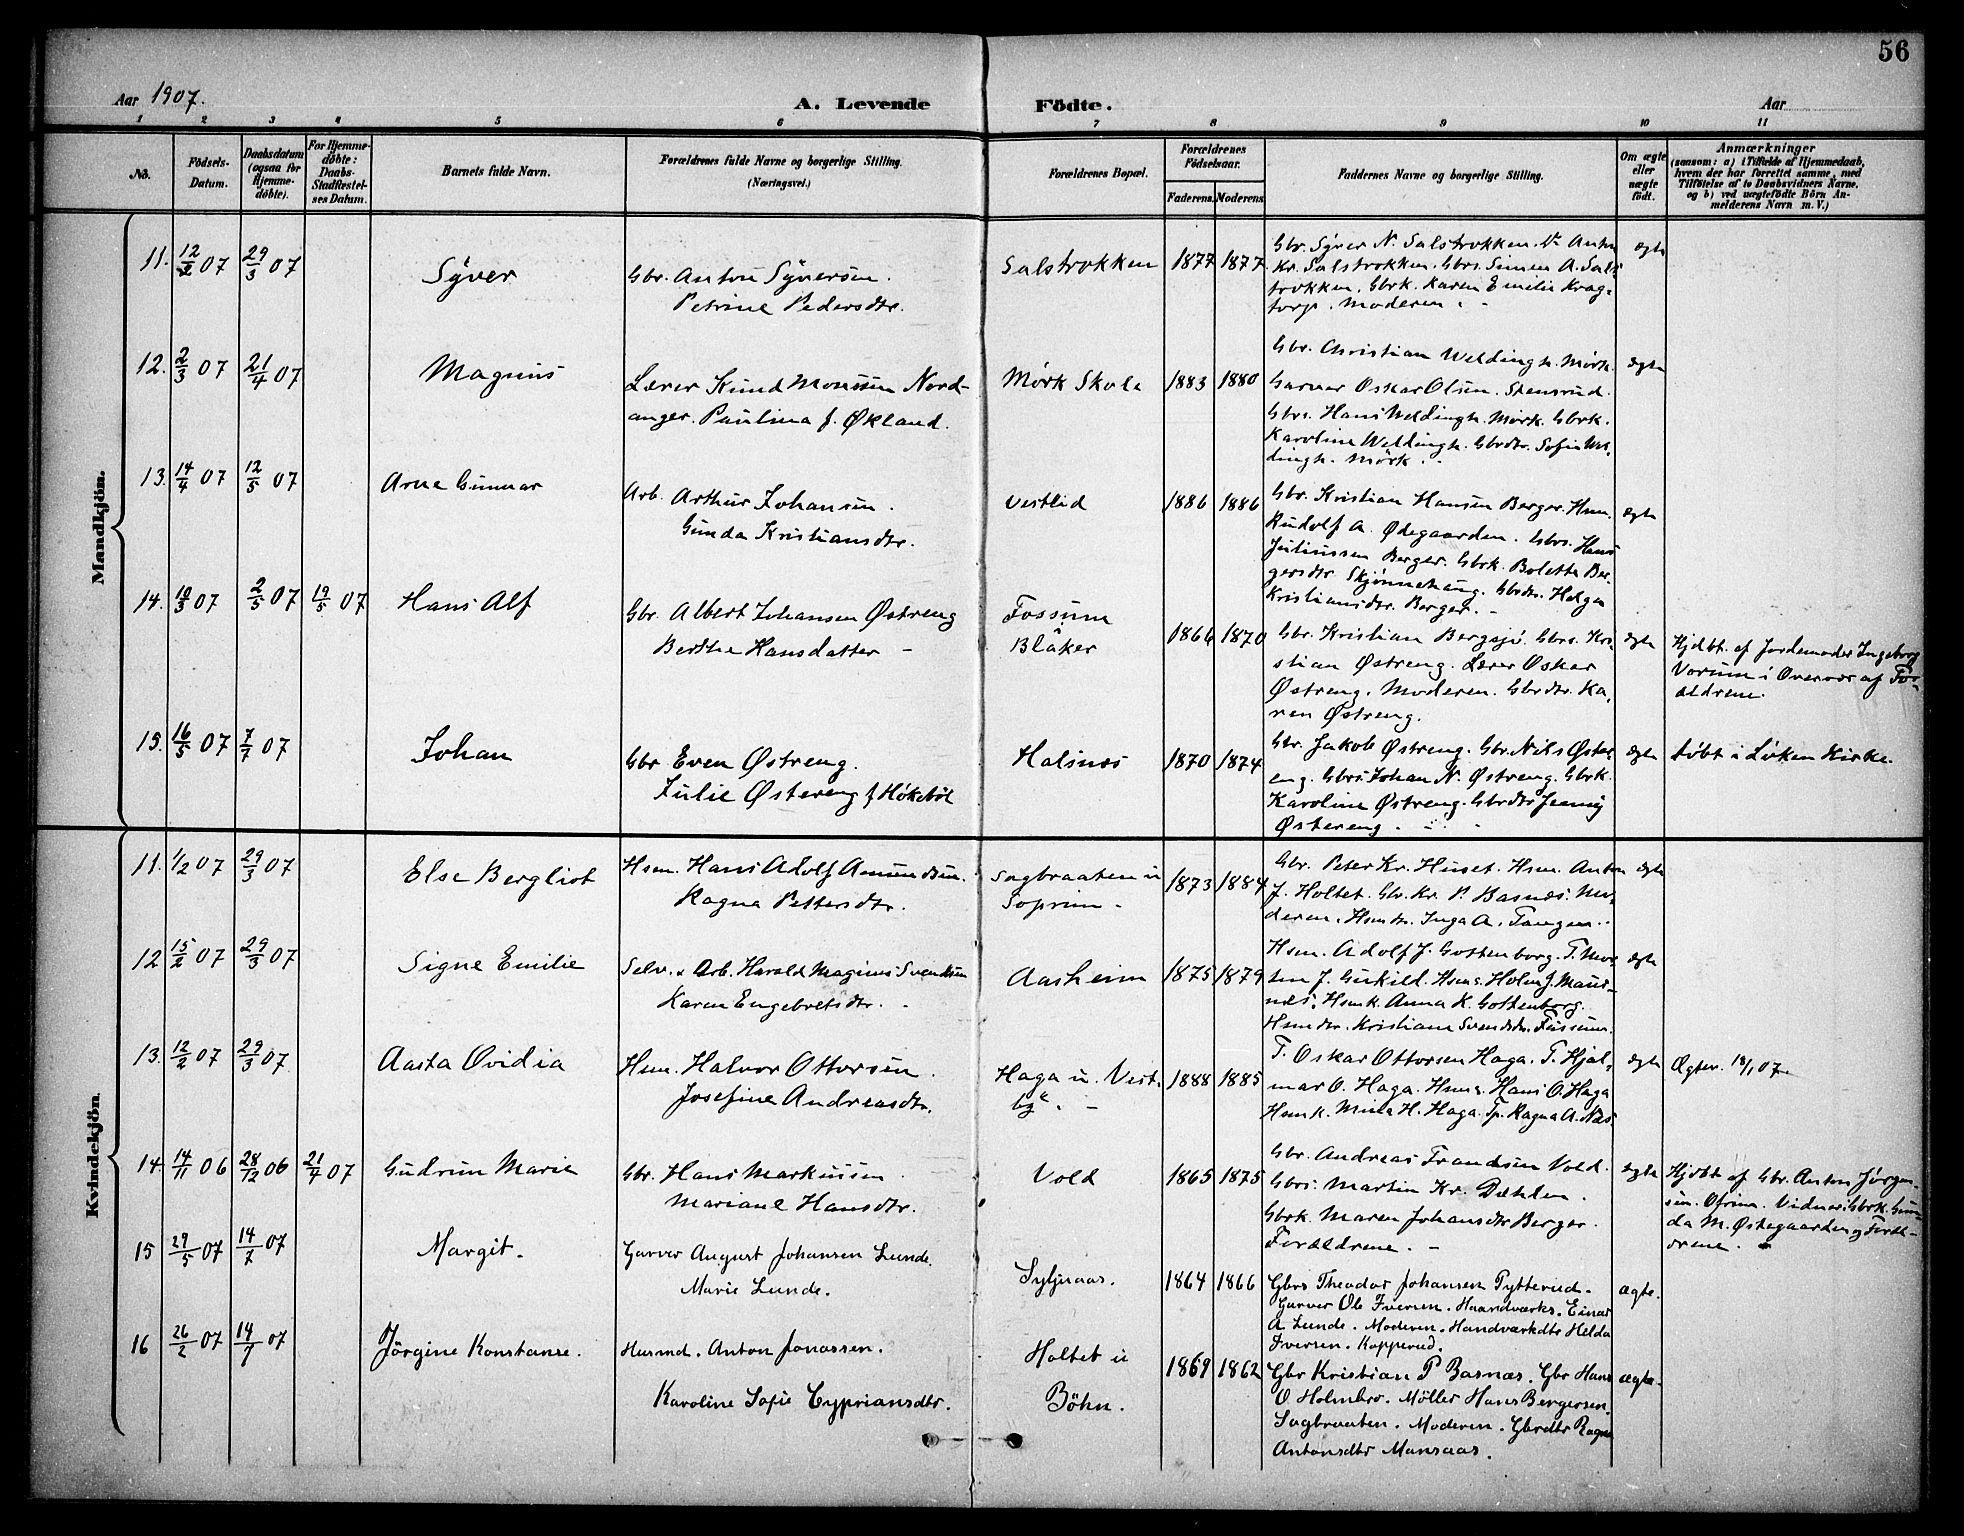 56
Aar 1907.
A. Levende
Födte.
Aar
1 2 3 4 5 6 7 8 9 10 11
No.
Födsels-
Datum.
Daabsdatum
(ogsaa for
Hjemme-
døbte).
For Hjemme-
døbte:
Daabs-
Stadfæstel-
ses Datum.
Barnets fulde Navn.
Forældrenes fulde Navne og borgerlige Stilling.
(Næringsvei.)
Forældrenes Bopæl.
Forældrenes
Födselsaar.
Faderens. Moderens
Faddernes Navne og borgerlige Stilling.
Om ægte
eller
uægte
födt.
Anmærkninger
(saasom: a) i Tilfælde af Hjemmedaab,
hvem der har forrettet samme, med
Tilföielse af to Daabsvidners Navne,
og b) ved uægtefödte Börn An-
melderens Navn m. V.)
Mandkjön.
11. 12/2 07 29/3 07
Syver
Gbr. Anton Syversen.
Petrine Pedersdtr.
Salstrokken
1877 1877
Gbr. Syver N. Salstrokken. Anton
Kr. Salstrokken. Gbrs. Simen A. Sals-
trokken. Gbrk. Karen Emilie Krag-
torp. Moderen.
ægte
12. 2/3 07 21/4 07
Magnus
Lærer Knud Monssen Nord-
anger. Paulina f. Økland.
Mørk Skole
1883 1880
Gbr. Christian Weldingh. Mørk.
Garver Oskar Olsen. Stensrud.
Gbrs. Hans Weldingh. Mørk. Gbrk.
Karoline Weldingh. Gbrdtr. Sofie Wel-
dingh. Mørk.
ægte
13. 14/4 07 12/5 07
Arne Gunnar
Arb. Arthur Johansen.
Gunda Kristiansdtr.
Vestlid
1886 1886
Gbr. Kristian Hansen Berger. Hsm.
Rudolf A. Ødegaarden. Gbrs. Hans
Juliussen Berger. Gbrk. Bolette Ber-
gersdtr Skjønnehaug. Gbrdtr. Helga
Kristiansdtr. Berger.
ægte
14. 10/3 07 2/5 07 19/5 07
Hans Alf
Gbr. Albert Johansen Østreng
Berthe Hansdatter
Fossum
Blåker
1866 1870
Gbr. Kristian Bergsjø. Gbrs. Kri-
stian Østreng. Lærer Oskar
Østreng. Moderen. Gbrdtr. Ka-
ren Østreng.
ægte
Hjdbt. af Jordemoder Ingeborg
Vorum i Overvær af For-
ældrene.
15. 16/5 07 7/7 07
Johan
Gbr Even Østreng.
Julie Østereng f. Høkebøl
Halsnæs
1870 1874
Gbr. Jakob Østreng. Gbr. Nils Øster-
eng. Gbrs. Johan N. Østreng. Gbrk.
Karoline Østreng. Gbrdtr Jenny
Østereng.
ægte
døbt i Løken Kirke.
Kvindekjön.
11. 1/2 07 29/3 07
Else Bergliot
Hsm. Hans Adolf Amundsen.
Ragna Pettersdtr.
Sagbraaten u
Soprim.
1873 1884
Gbr. Peter Kr. Huset. Hsm. Anton
J. Holtet. Gbr. Kr. P. Basnæs. Mo-
deren. Hsmdtr. Inga A. Tangen.
ægte
12 15/2 07 29/3 07
Signe Emilie
Selv. Arb. Harald Magnus Svendsen
Karen Engebretsdtr.
Aasheim
1875 1879
Hsm. Adolf J. Gottenborg. T. Mor-
ten J. Gukild. Hsms. Holm J. Maus-
næs. Hsmk. Anna K. Gottenborg.
Hsmdtr. Kristiane Svendsdtr. Fossum.
ægte
13. 12/2 07 29/3 07
Aasta Ovidia
Hsm. Halvor Ottersen.
Josefine Andreasdtr.
Haga u. Vest-
by.
1888 1885
T. Oskar Ottersen Haga. T. Hjal-
mar O. Haga. Hsms. Hans O. Haga
Hsmk. Mina H. Haga. Tp. Ragna A. Næs.
ægte
Ægtev. 19/1 07
14. 14/11 06 28/12 06 21/4 07
Gudrun Marie
Gbr. Hans Markussen
Mariane Hansdtr.
Vold
1865 1875
Gbr. Andreas Frandsen Vold.
Gbrs. Martin Kr. Dæhlen.
Gbrk. Maren Johansdtr Berger.
Forældrene.
ægte
Hjdbt af Gbr. Anton Jørgen-
sen. Ofrim. Vidner: Gbrk. Gun-
da M. Østegaarden og Foræl-
drene.
15 29/5 07 14/7 07
Margit.
Garver August Johansen Lunde.
Marie Lunde.
Syljuaas.
1864 1866
Gbrs Theodor Johansen Pytterud.
Garver Ole Iversen. Haandværks. Einar
A Lunde. Moderen. Handværkdtr Helda
Iversen. Kopperud.
ægte.
16 26/2 07 14/7 07
Jörgine Konstanse.
Husmd. Anton Jonassen.
Karoline Sofie Cypriansdtr.
Holtet u
Böhn.
1869 1862
Gbr Kristian P Basnæs. Gbr Hans
O Holmbro. Möller Hans Bergersen.
Sagbraaten. Moderen. Gbrdtr Ragna
Antonsdtr Mansaas.
ægte